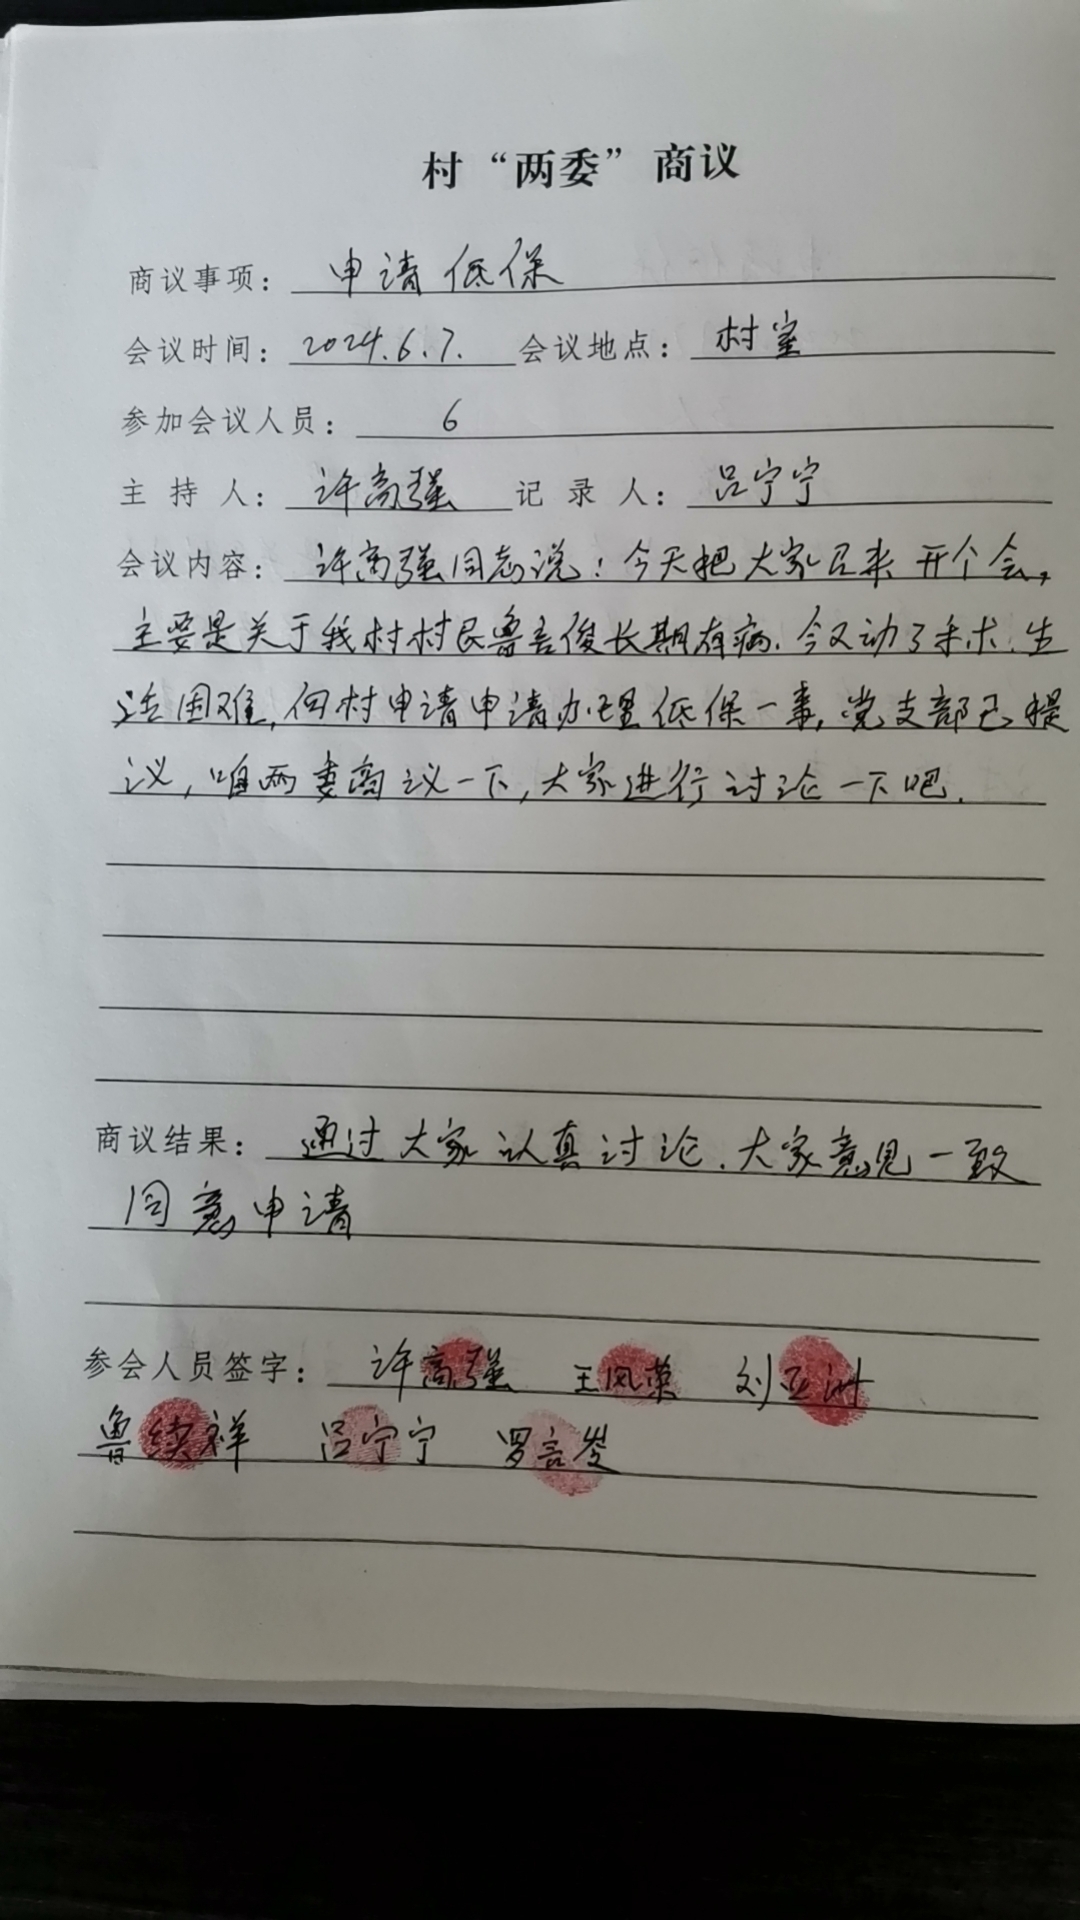 村“两委”商议
商议事项: 申请低保
会议时间: 2024.6.7. 会议地点: 村室
参加会议人员: 6
主持人: 许高强 记录人: 吕宁宁
会议内容: 许高强同志说: 今天把大家召来开个会,
主要是关于我村村民鲁言俊长期有病.今又动了手术.生
活困难,向村申请申请办理低保一事,党支部已提
议,咱两委商议一下,大家进行讨论一下吧.
商议结果: 通过大家认真讨论.大家意见一致
同意申请
参会人员签字: 许高强 王风荣 刘亚洲
鲁续祥 吕宁宁 罗言